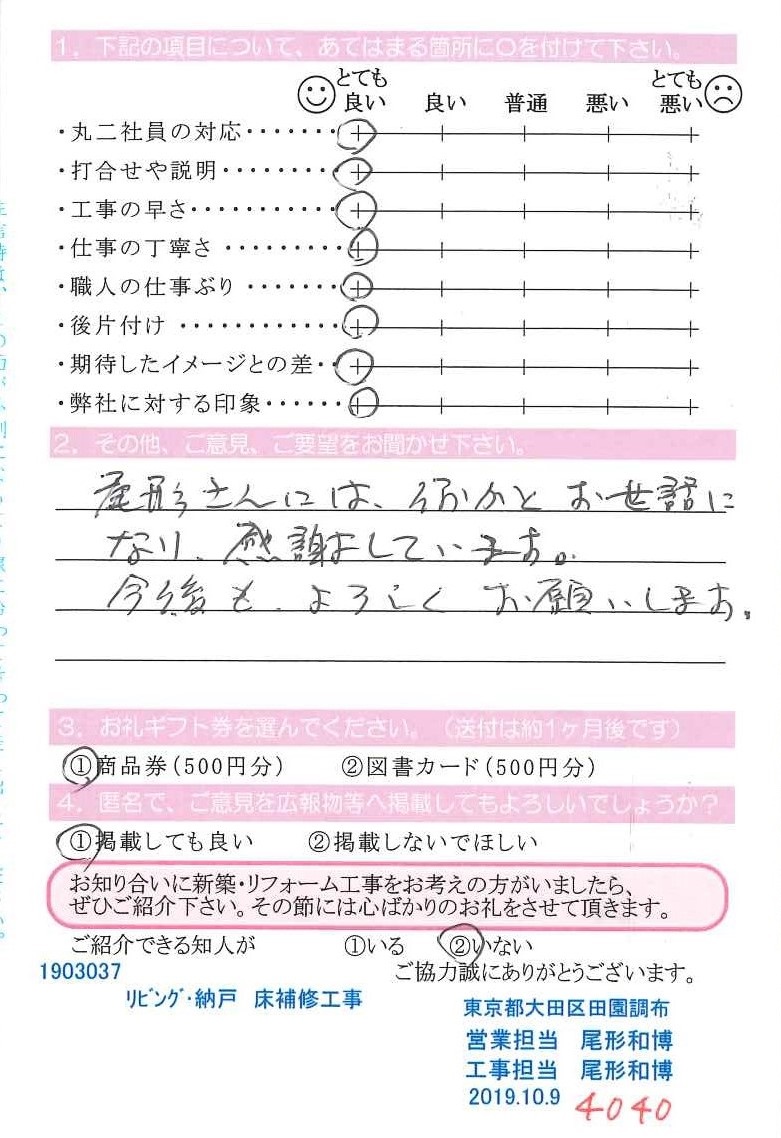 1. 下記の項目について、あてはまる箇所に○を付けて下さい。
とても良い 良い 普通 悪い とても悪い
・丸二社員の対応・・・・・・・
・打合せや説明・・・・・・・・
・工事の早さ・・・・・・・・・・・
・仕事の丁寧さ ・・・・・・・・・
・職人の仕事ぶり ・・・・・・・
・後片付け ・・・・・・・・・・・・
・期待したイメージとの差・・
・弊社に対する印象・・・・・・
2. その他、ご意見、ご要望をお聞かせ下さい。
尾形さんには、何かと お世話に
なり、感謝しています。
今後も、よろしく お願いします。
3. お礼ギフト券を選んでください。（送付は約1ヶ月後です）
①商品券（500円分） ②図書カード（500円分）
4. 匿名で、ご意見を広報物等へ掲載してもよろしいでしょうか？
①掲載しても良い ②掲載しないでほしい
お知り合いに新築・リフォーム工事をお考えの方がいましたら、
ぜひご紹介下さい。その節には心ばかりのお礼をさせて頂きます。
ご紹介できる知人が ①いる ②いない
1903037 ご協力誠にありがとうございます。
ﾘﾋﾞﾝｸﾞ・納戸 床補修工事
東京都大田区田園調布
営業担当 尾形和博
工事担当 尾形和博
2019.10.9 4040